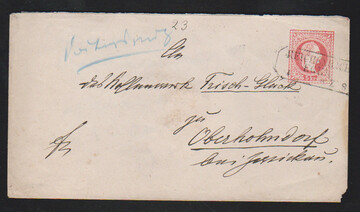 23
An
das Kohlenwerk Frisch-Glück
zu
Oberhohndorf
bei Zwickau.